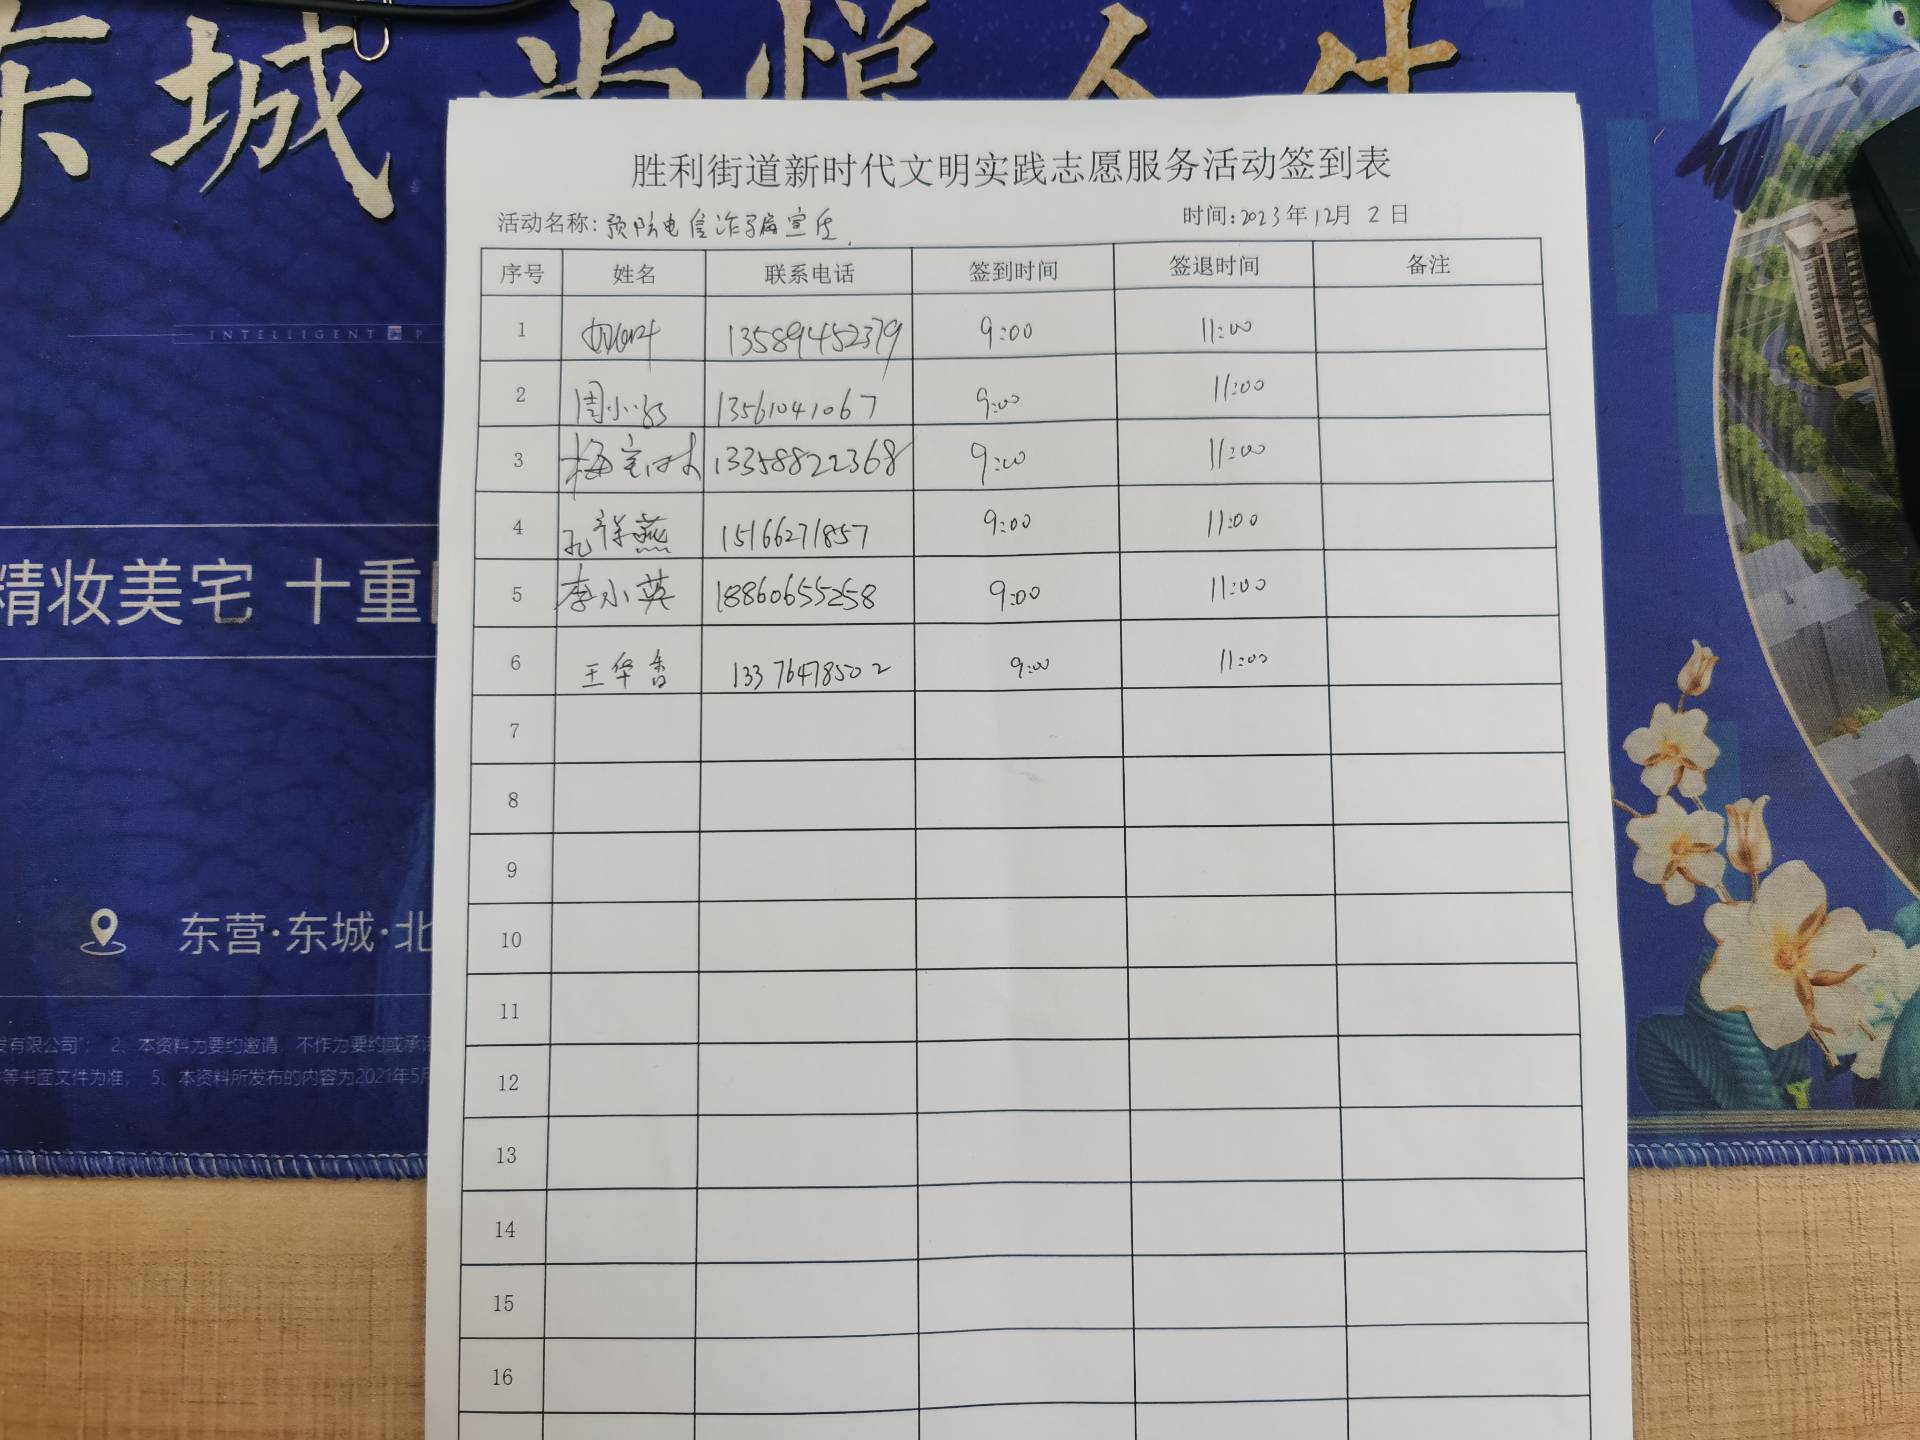 东城 尚悦人生
胜利街道新时代文明实践志愿服务活动签到表
活动名称:预防电信诈骗宣传 时间:2023年12月2日
序号 姓名 联系电话 签到时间 签退时间 备注
1 13589452379 9:00 11:00
2 周小 13561041067 9:00 11:00
3 梅宝 13358822368 9:00 11:00
4 孔祥燕 15166271857 9:00 11:00
5 李小英 18860655258 9:00 11:00
6 王华香 13376478502 9:00 11:00
7
8
9
10
11
12
13
14
15
16
INTELLIGENT P
精妆美宅 十重
东营·东城·北
发有限公司”; 2、本资料为要约邀请,不作为要约或承诺
等书面文件为准; 5、本资料所发布的内容为2021年5月